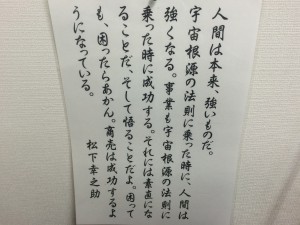 人間は本来、強いものだ。
宇宙根源の法則に乗った時に、人間は
強くなる。事業も宇宙根源の法則に
乗った時に成功する。それには素直にな
ることだ、そして悟ることだよ。困って
も、困ったらあかん。商売は成功するよ
うになっている。
松下幸之助